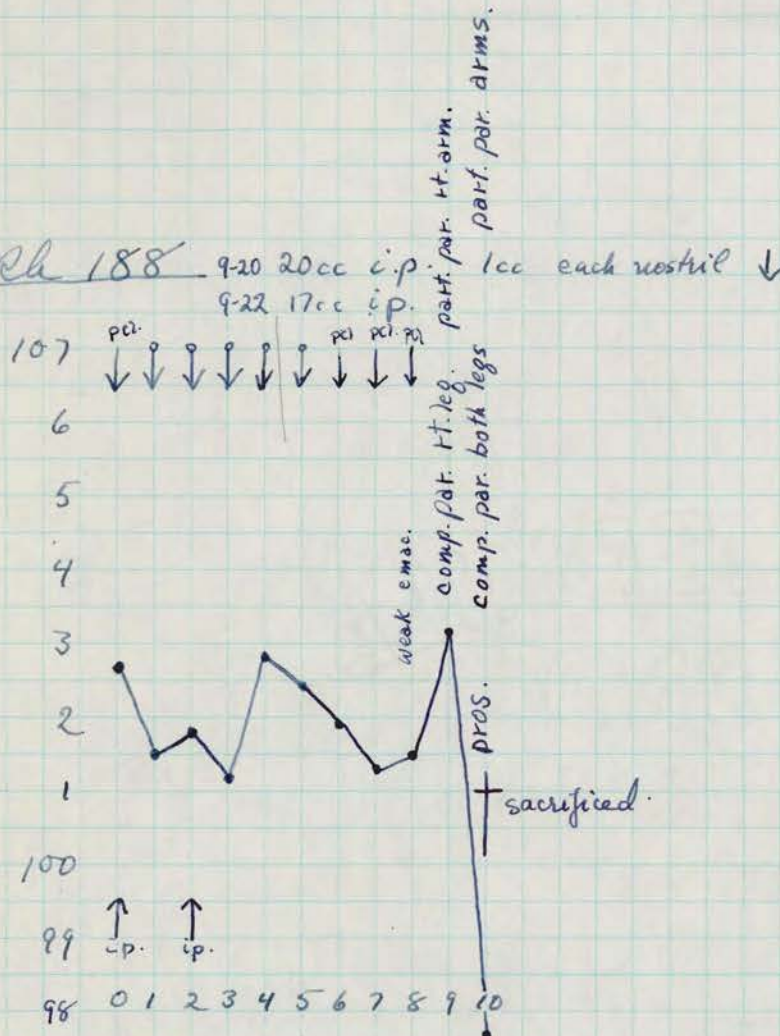 188 9-20 20cc i.p. 1cc each nostril ↓
9-22 17cc i.p.
pcl. pcl pcl. pcl
107
6
5
4
3
2
1
100
99
98
weak emac.
comp. par. rt. leg. part. par. rt. arm.
comp. par. both legs part. par. arms.
pros.
sacrificed.
i.p. i.p.
0 1 2 3 4 5 6 7 8 9 10